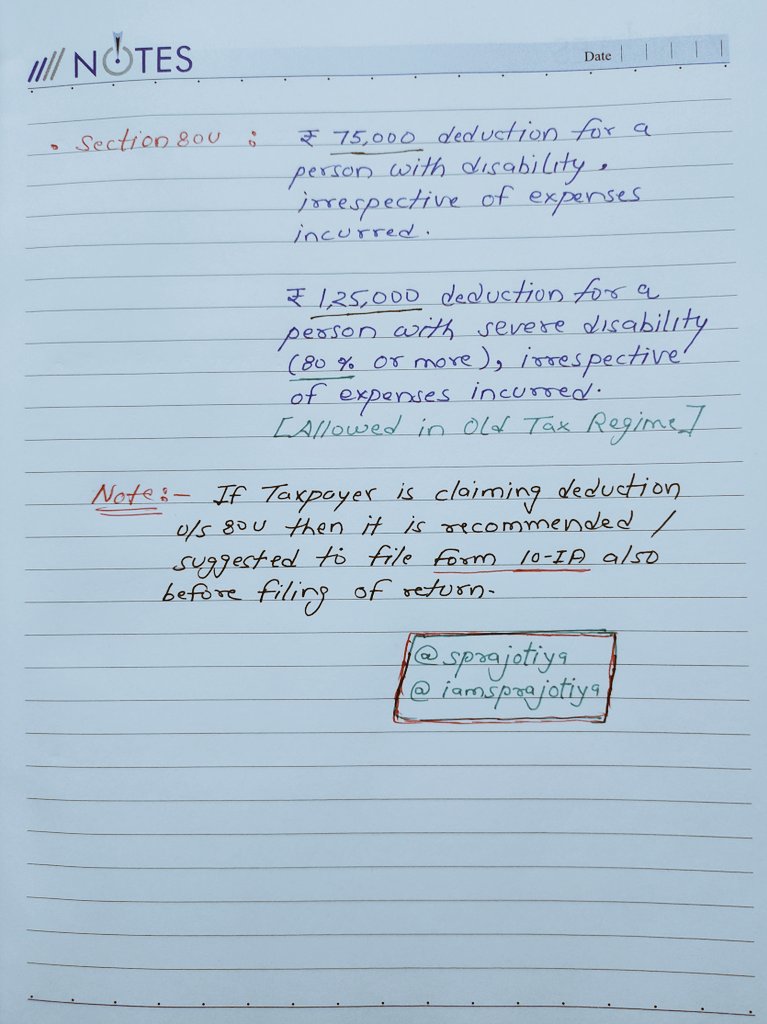 NOTES
Date
• Section 80U : ₹ 75,000 deduction for a
person with disability,
irrespective of expenses
incurred.
₹ 1,25,000 deduction for a
person with severe disability
(80 % or more), irrespective
of expenses incurred.
[Allowed in Old Tax Regime]
Note:- If Taxpayer is claiming deduction
u/s 80U then it is recommended /
suggested to file Form 10-IA also
before filing of return.
@ sprajotiya
@ iamsprajotiya